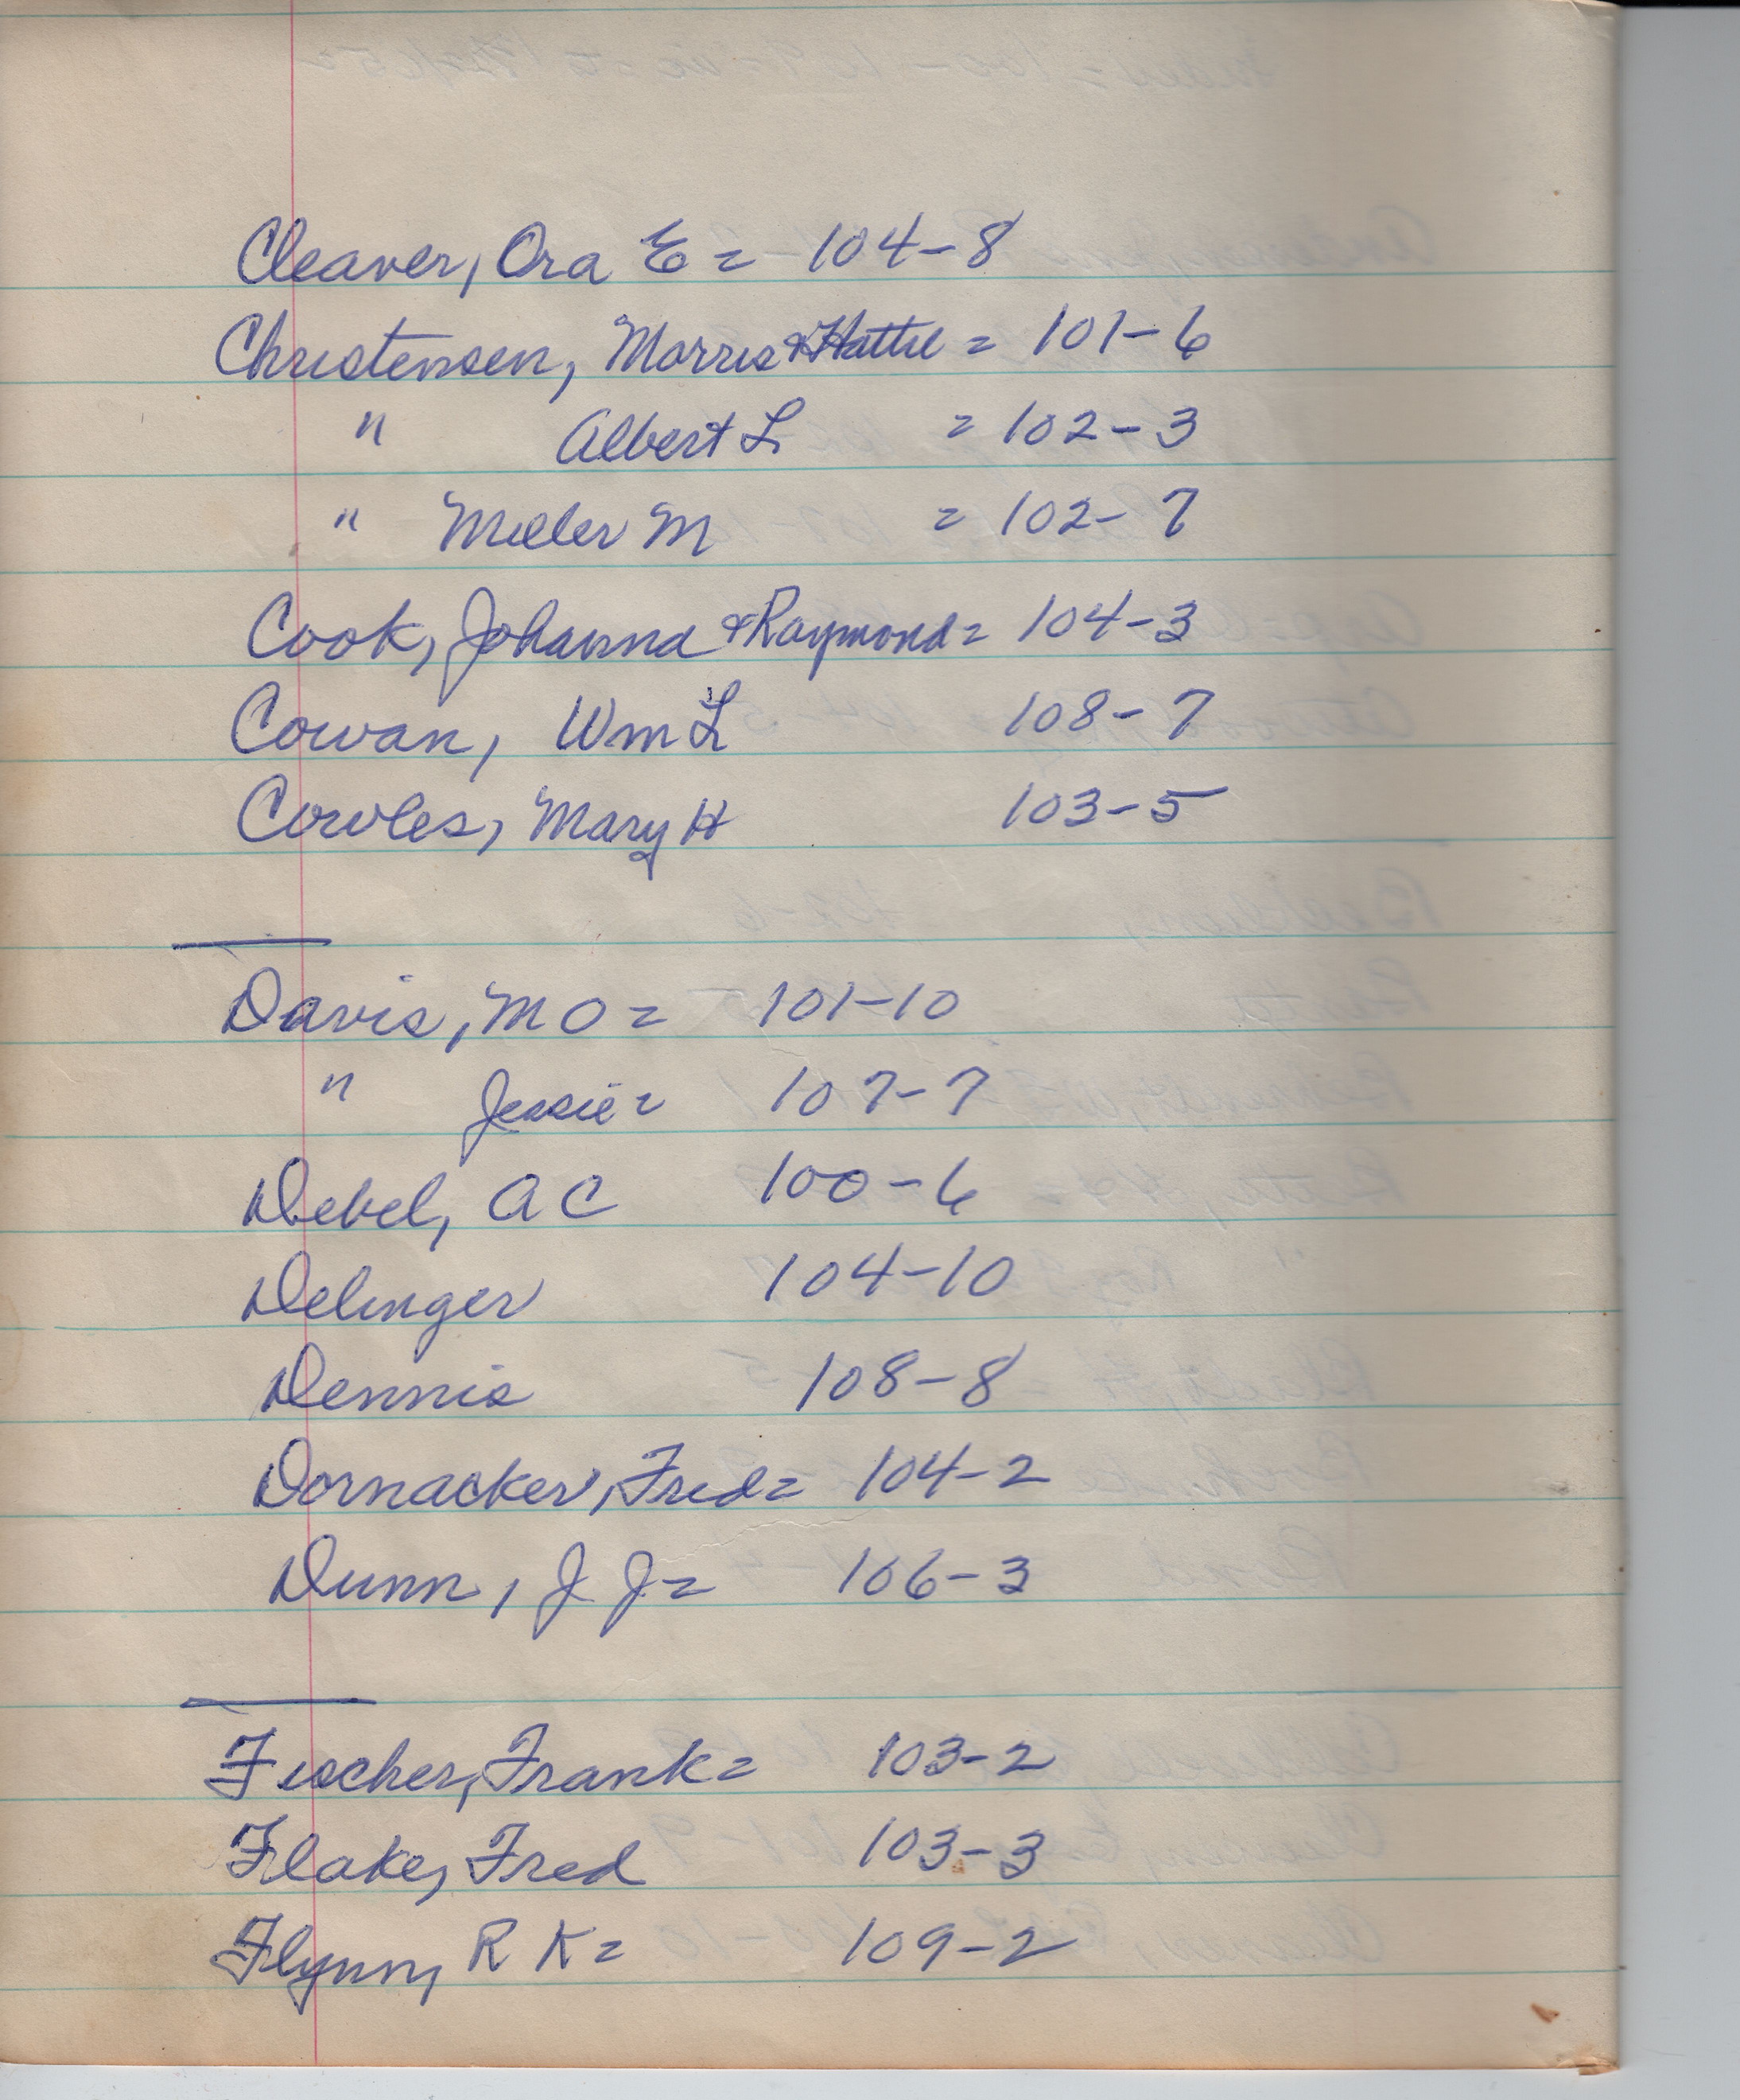 Cleaver, Ora E = 104-8
Christensen, Morris & Hattie = 101-6
" Albert L = 102-3
" Meller M = 102-7
Cook, Johanna & Raymond = 104-3
Cowan, Wm L 108-7
Cowles, Mary H 103-5
Davis, M O = 101-10
" Jessie = 107-7
Debel, A C 100-6
Delinger 104-10
Dennis 108-8
Dornacker, Fred = 104-2
Dunn, J J = 106-3
Fischer, Frank = 103-2
Flake, Fred 103-3
Flynn, R K = 109-2